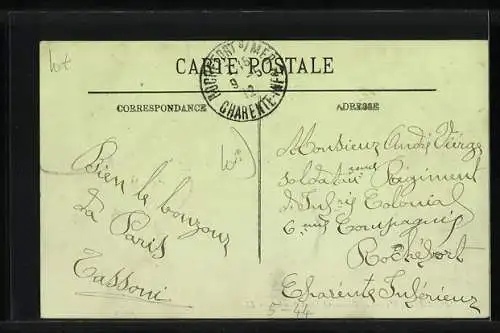 lot
CARTE POSTALE
ROCHEFORT S/MER
CHARENTE-INFRE
CORRESPONDANCE
ADRESSE
Bien le bonzour
Da Paris
Tassoni
Monsieur André
soldat au Régiment
Colonial
6 eme Compagnie
Rochefort
Charente Inférieur
5-44